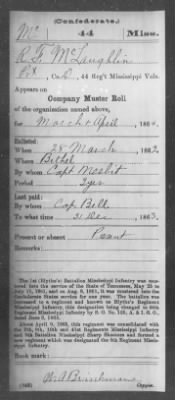 (Confederate.)
Mc 44 Miss.
R. F. McLaughlin
Pvt, Co. , 44 Reg't Mississippi Vols.
Appears on
Company Muster Roll
of the organization named above,
for March & April, 1864.
Enlisted:
When 28 March, 1862
Where Bethel
By whom Capt Nesbit
Period 2 yrs
Last paid:
By whom Cap Bell
To what time 31 Dec, 1863.
Present or absent Present
Remarks:
The 1st (Blythe's) Battalion Mississippi Infantry was mustered into the service of the State of Tennessee,
Confederate States service for one year. The battalion was increased to a regiment and known as Blythe's Regiment Mississippi Infantry; this designation being changed to this Regiment Mississippi Infantry by S. O. No. 135, A. & I. G. O., dated June 8, 1863.
About April 9, 1865, this regiment was consolidated with the 7th, 9th, 10th and 41st Regiments Mississippi Infantry and 9th Battalion Mississippi Sharp Shooters and formed a new regiment which was designated the 9th Regiment Mississippi Infantry.
Book mark:
(642) Copyist.